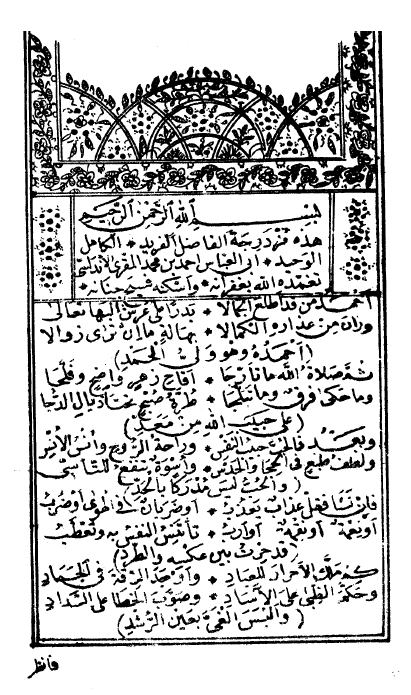 بسم الله الرحمن الرحيم
هذه مزدوجة الفاضل الفريد * الكامل
الوحيد * ابى العباس احمد بن محمد المقرى الاندلسى
تغمده الله بغفرانه * واسكنه فسيح جنانه *
احمد من قد اطلع الجمالا * بدرا على غصن البها تعالى
وزان من عذاره الكمالا * بهالة ما ان ترى زوالا
(احمده وهو ولي الحمد)
ثم صلاة الله ما تأرجا * اقاح زهر واضح وفلجا
وما حكى فرق وما تبلجا * طرة صبح تحت اذيال الدجا
(على حبيب الله من معد)
وبعد فالحب حياة النفس * وراحة الروح وانس الانس
ولطف طبع في الحجا والحدس * واسوة تنفع للتأسي
(والحب ليس مدركا بالحد)
فان تشا فقل عذاب يعذب * او ضربان في الهوى او ضرب
او نعمة او نقمة او ارب * تأتنس النفس به وتعطب
(قد حرت بين عكسه والطرد)
كم ملك الاحرار للعباد * واوجد الرقة في الجماد
وحكم الظبي على الآساد * وصوب الخطا على السداد
(والبس الغي بعين الرشد)
فانظر